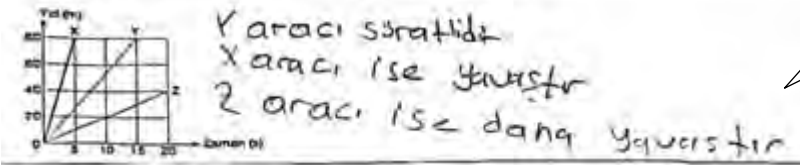 Yol (m)
X Y
80
60
40
Z
20
0 5 10 15 20
Zaman (s)
Y aracı süratlidir
X aracı ise yavaştır
Z aracı ise daha yavaştır